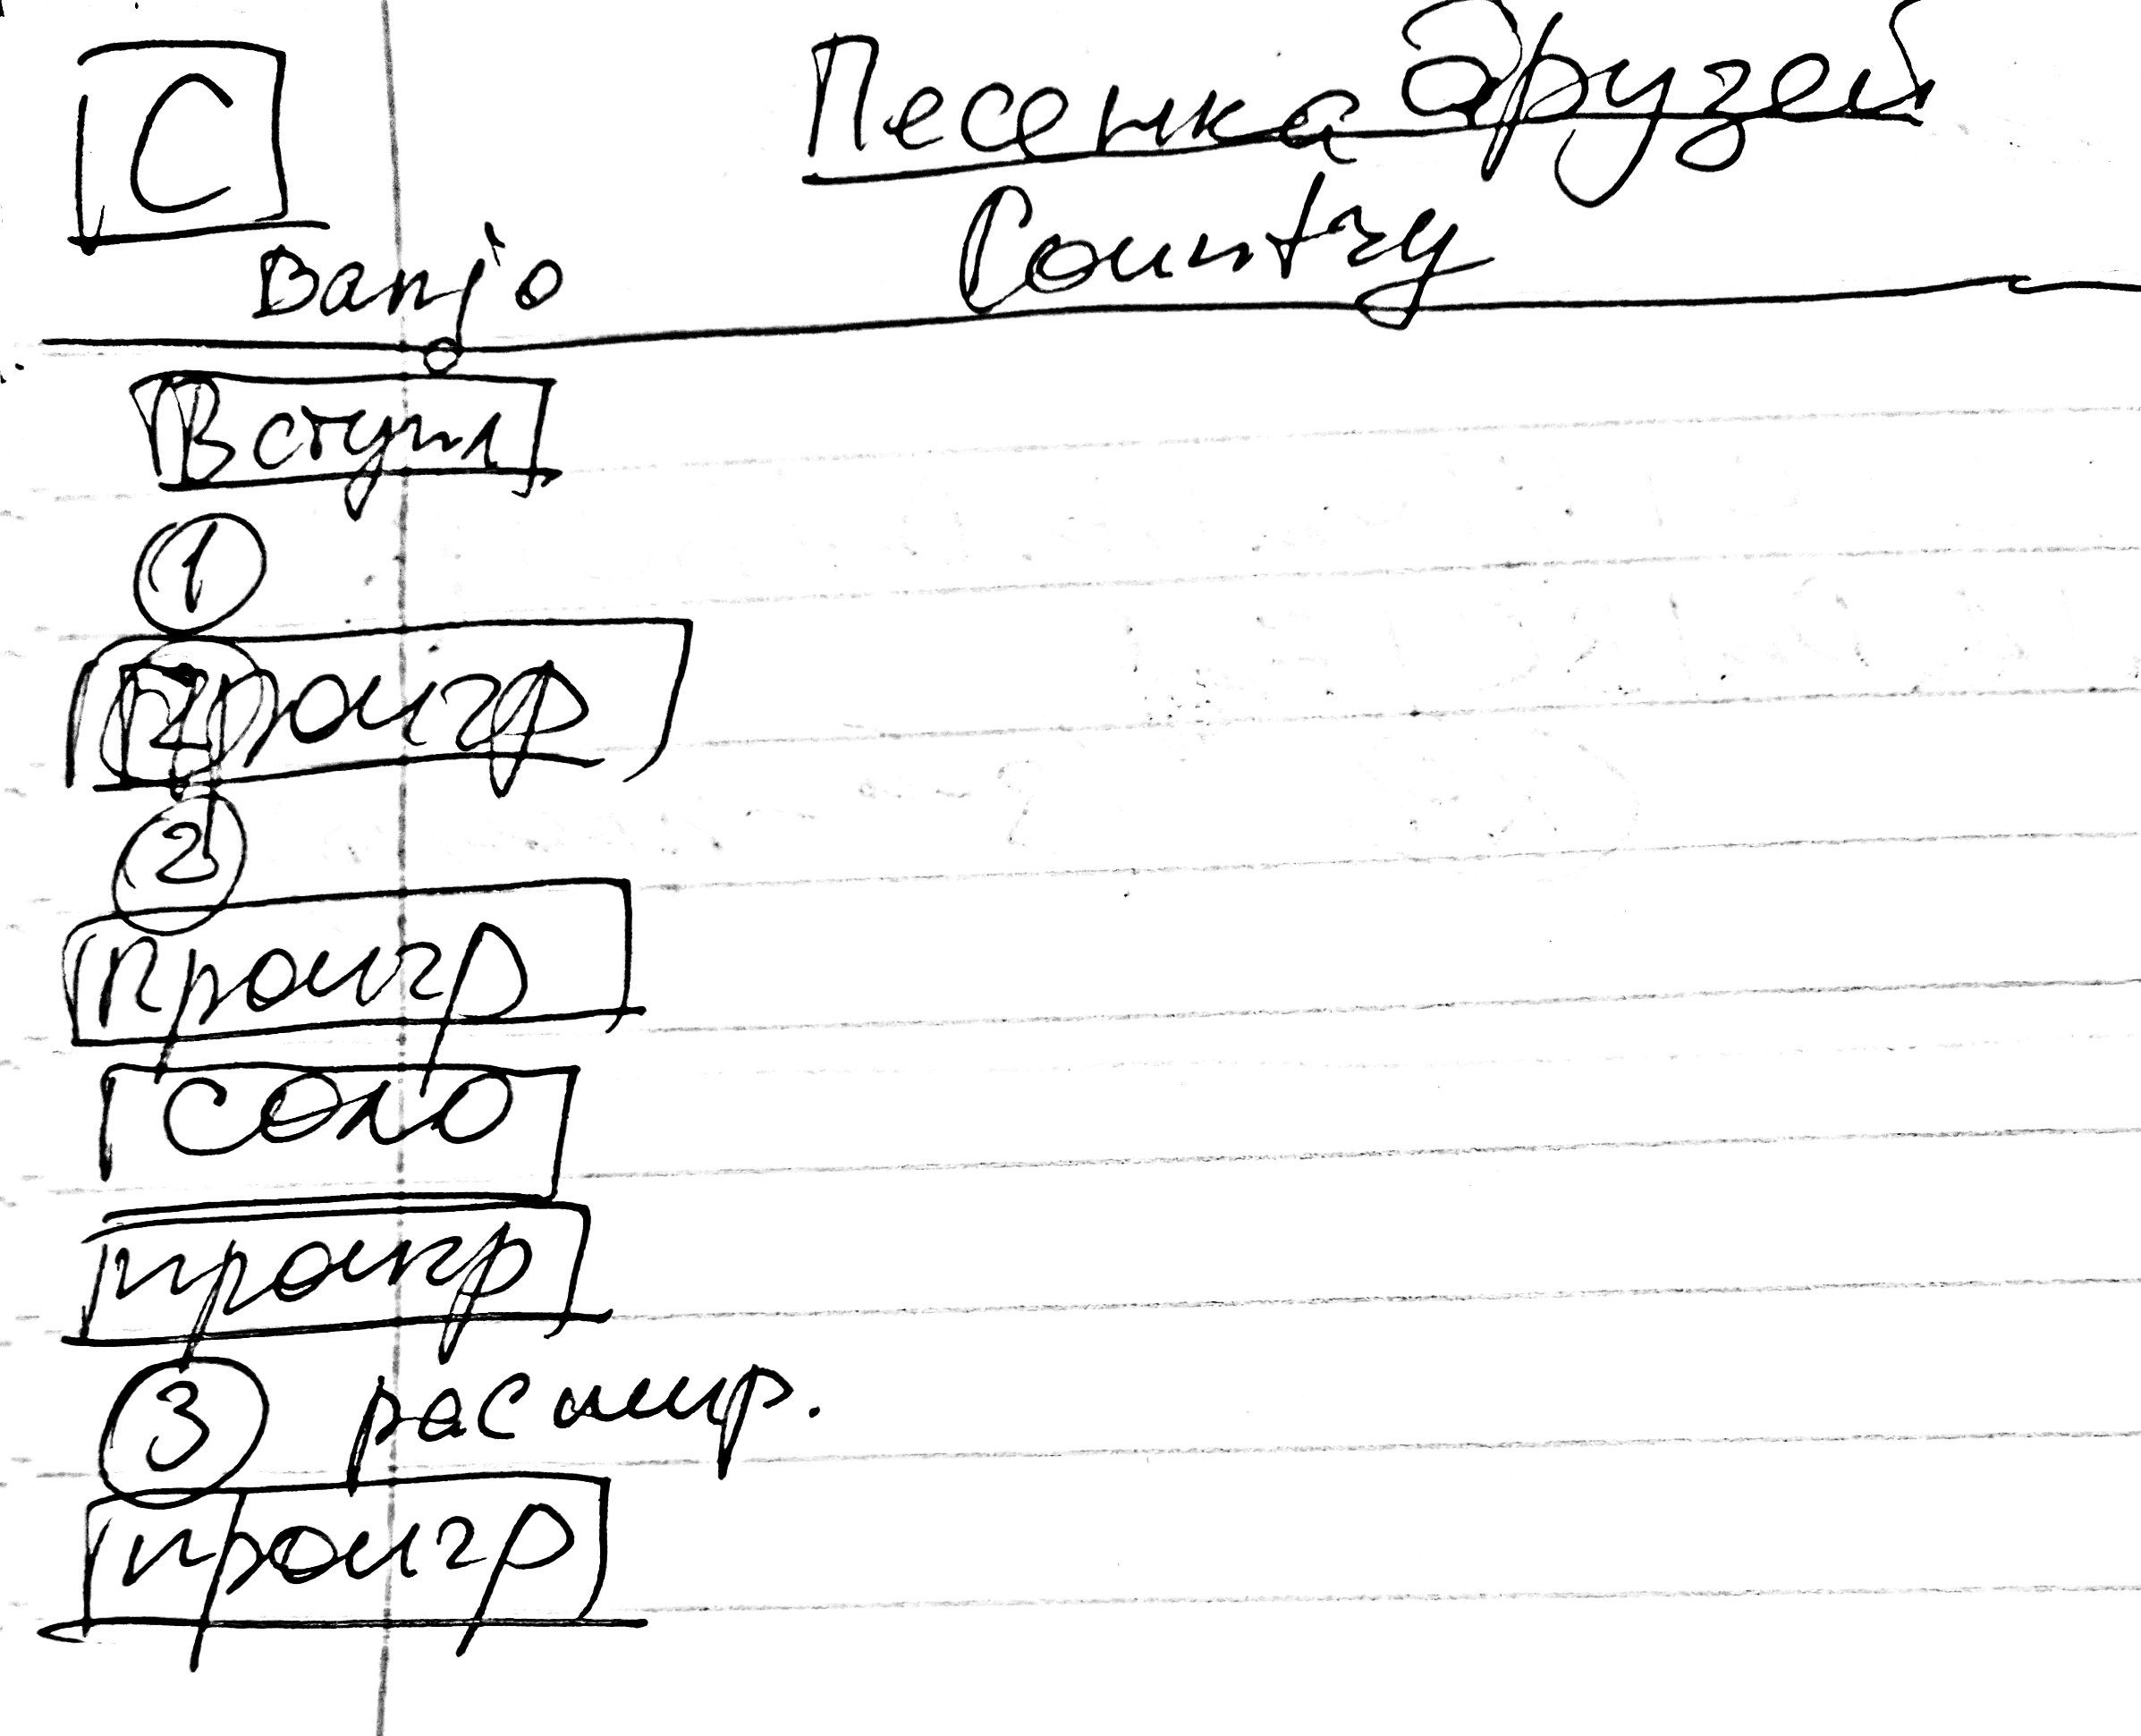 C Песенка друзей
Banjo Country
Вступл
1
проигр
2
проигр
соло
проигр
3 расшир.
проигр